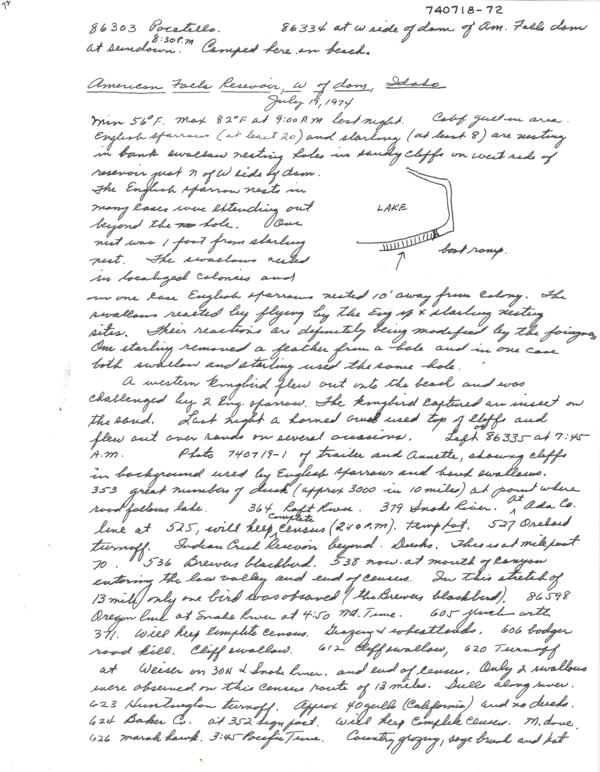 740718-72
86303 Pocatello. 86334 at W side of dam of Am. Falls dam
at sundown. 8:30 P.M. Camped here on beach.
American Falls Reservoir, W of dam, Idaho
July 19, 1974
Min 56°F. Max 82°F at 9:00 P.M last night. Calif gull in area.
English sparrows (at least 20) and starling (at least 8) are nesting
in bank swallow nesting holes in sandy cliffs on west side of
reservoir just N of W side of dam.
The English sparrow nests in
many cases were extending out
beyond the hole. One
nest was 1 foot from starling
nest. The swallows nested
in localized colonies and
LAKE
boat ramp.
in one case English sparrows nested 10' away from colony. The
swallows reacted by flying by the Eng sp & starling nesting
sites. Their reactions are definitely being modified by the
One starling removed a feather from a hole and in one case
both swallow and starling used the same hole.
A western kingbird flew out onto the beach and was
challenged by 2 Eng sparrow. The kingbird captured an insect on
the sand. Last night a horned owl used top of cliffs and
flew out over sands on several occasions. Left 86335 at 7:45
A.M. Photo 740719-1 of trailer and Annette, showing cliffs
in background used by English sparrows and bank swallows.
353 great number of duck (approx 3000 in 10 miles) at point where
road follows lake. 364 Raft River. 379 Snake River. At Ada Co.
line at 525, will keep complete census (2:40 P.M.). temp hot. 527 Orchard
turnoff. Indian Creek Resevoir beyond. Ducks. This is at milepost
70. 536 Brewers blackbird. 538 now at mouth of canyon
entering the low valley and end of census. In this stretch of
13 mile only one bird was observed (the Brewers blackbird). 86598
Oregon line at Snake River at 4:50 Mt. Time. 605 junct with
. Will keep complete census. Grazing & wheatlands. 606 badger
road kill. Cliff swallow. 612 Cliff swallow, 620 Turnoff
at Weiser on 30N & Snake River, and end of census. Only 2 swallows
were observed on this census route of 13 miles. Gulls along river.
623 Huntington turnoff. Approx 40 gulls (California) and no ducks.
624 Baker Co. at 352 sign post. Will keep complete census. M. dove.
626 marsh hawk. 3:45 Pacific Time. Country grazing, sage brush and hot